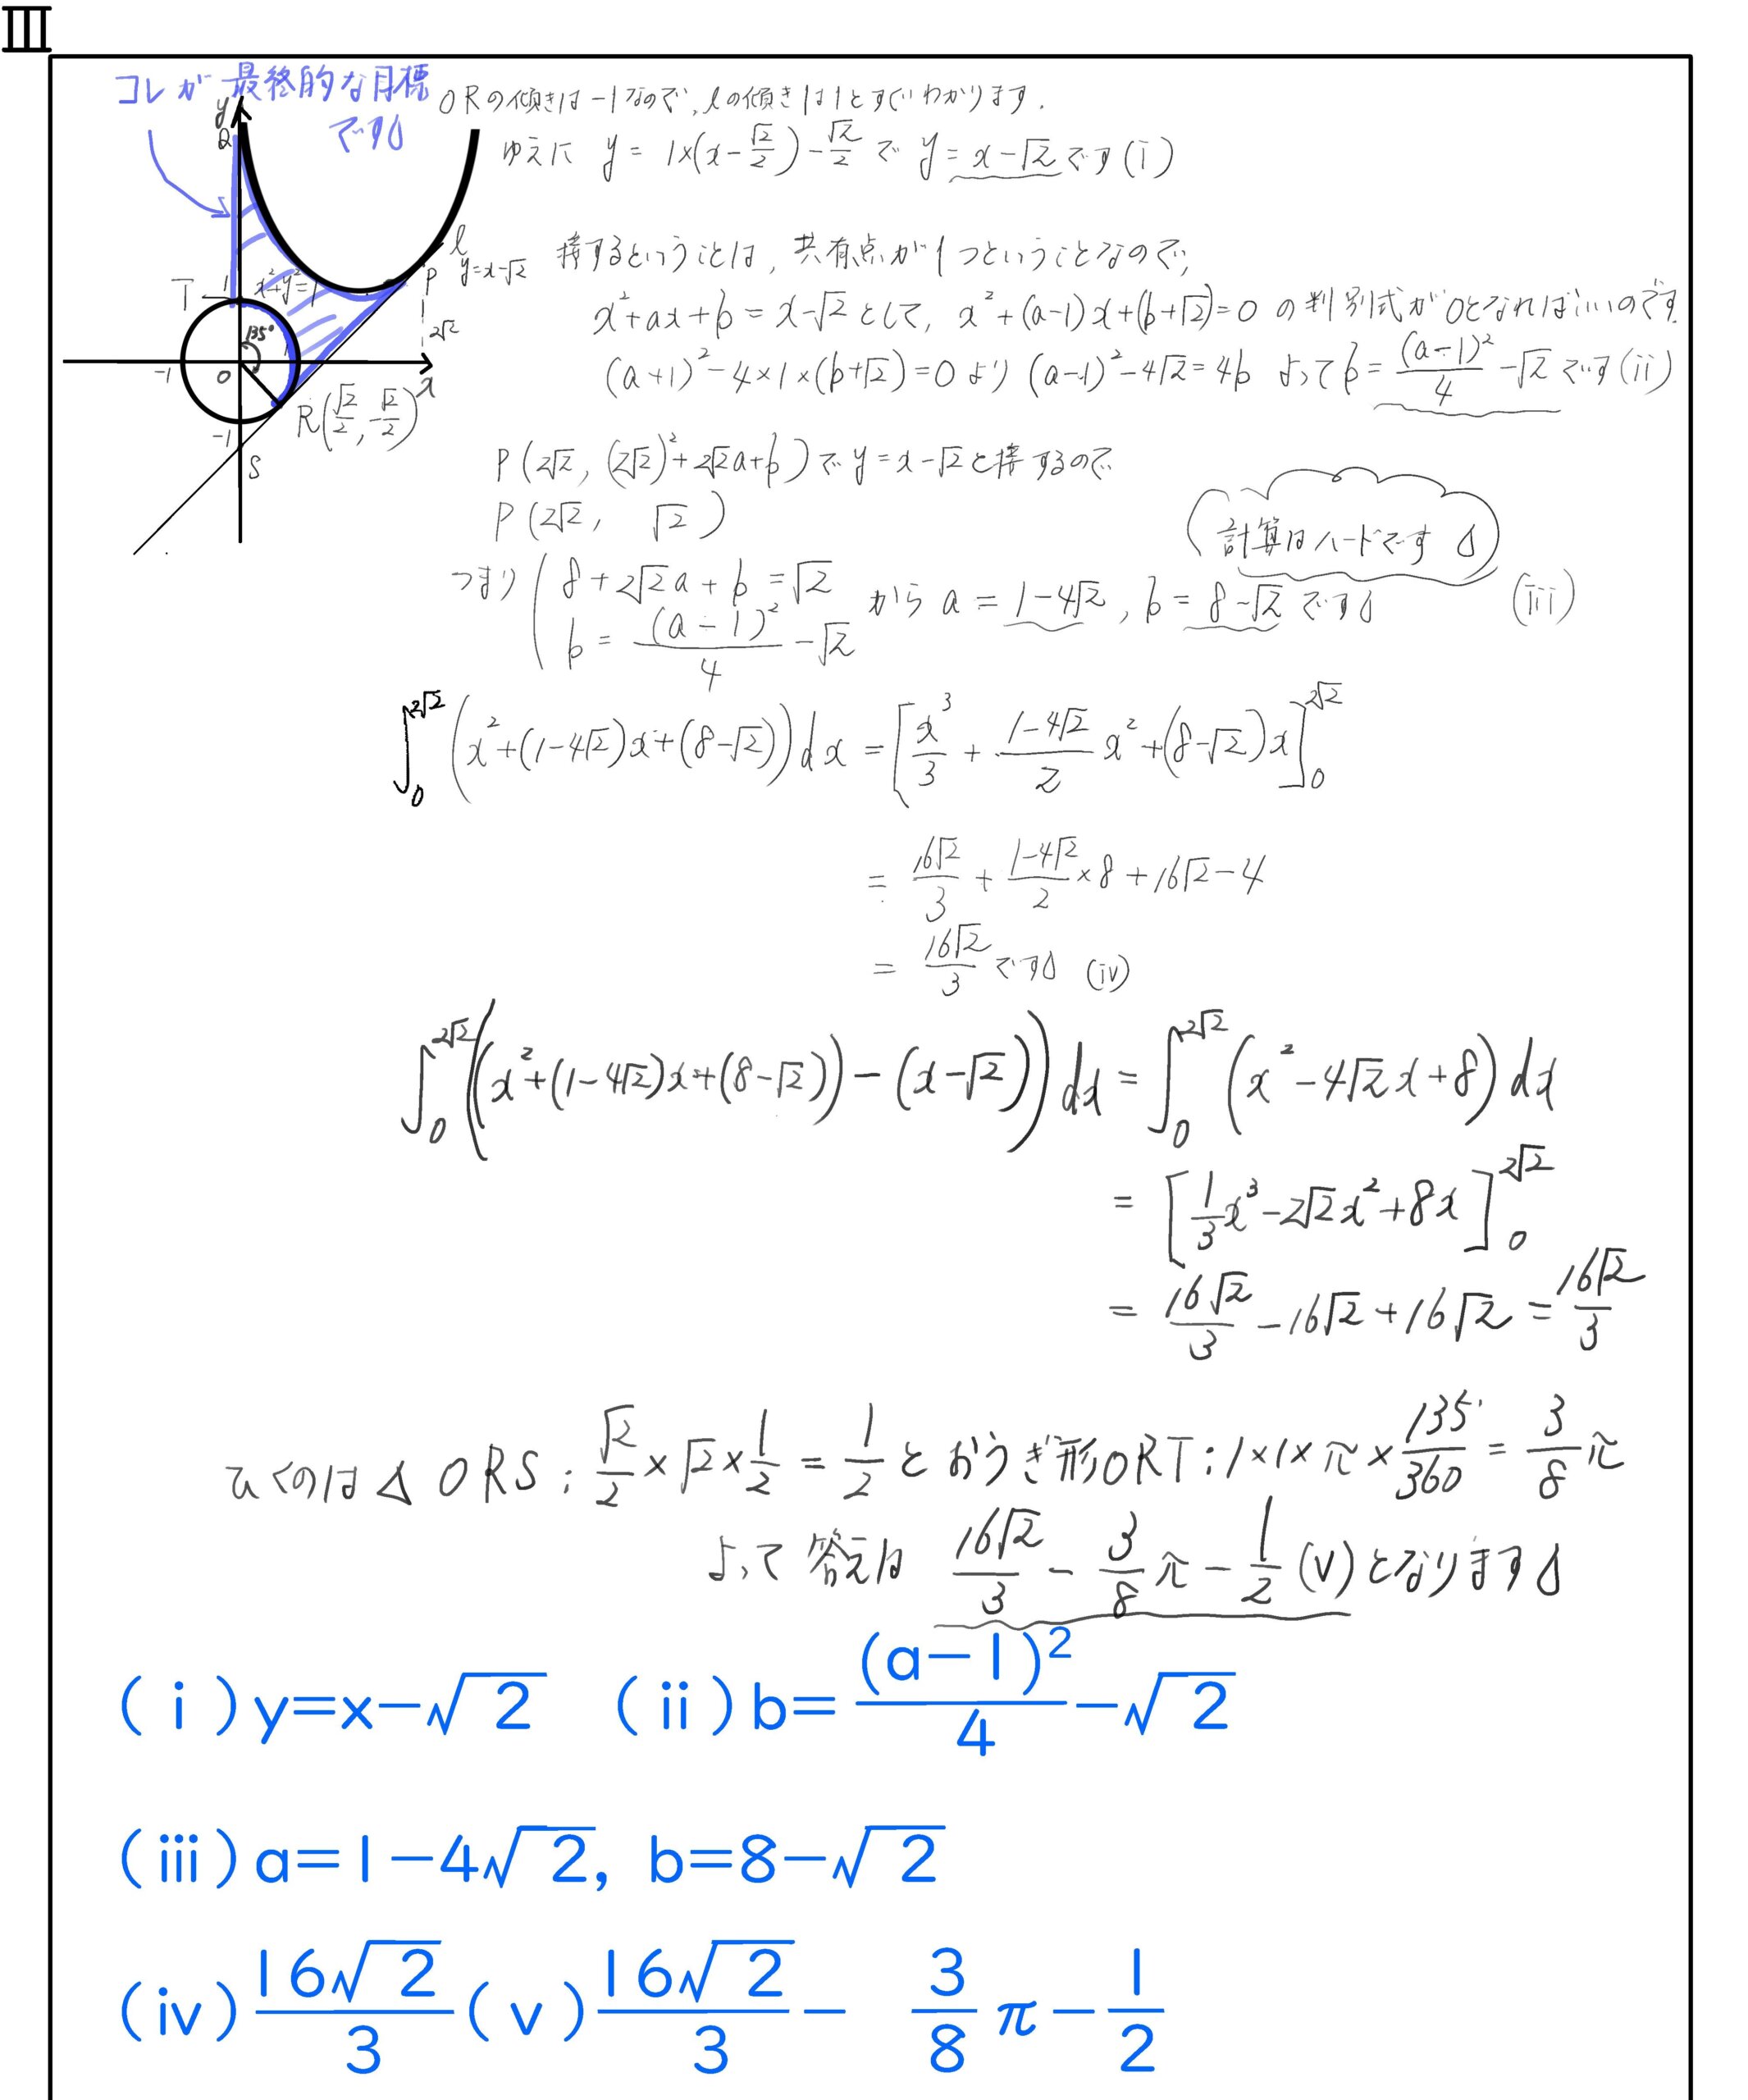 III
コレが最終的な目標
です♪
ORの傾きは-1なので, lの傾きは1とすぐわかります.
ゆえに y = 1×(x-√2/2)-√2/2 で y=x-√2です(i)
y
Q
l
y=x-√2
P
T
1
x²+y²=1
2√2
135°
-1
O
1
x
R(√2/2, -√2/2)
-1
S
接するということは, 共有点が1つということなので,
x²+ax+b=x-√2として, x²+(a-1)x+(b+√2)=0 の判別式が0となればいいのです.
(a+1)²-4×1×(b+√2)=0より (a-1)²-4√2=4b よってb=(a-1)²/4-√2です(ii)
P(2√2, (2√2)²+2√2a+b)でy=x-√2と接するので
P(2√2, √2)
計算はハードです♪
つまり 8+2√2a+b=√2
b=(a-1)²/4-√2
から a=1-4√2, b=8-√2です♪ (iii)
∫₀^{2√2}(x²+(1-4√2)x+(8-√2))dx=[x³/3+(1-4√2)/2 x²+(8-√2)x]₀^{2√2}
=16√2/3+(1-4√2)/2×8+16√2-4
=16√2/3です♪ (iv)
∫₀^{2√2}((x²+(1-4√2)x+(8-√2))-(x-√2))dx=∫₀^{2√2}(x²-4√2x+8)dx
=[1/3x³-2√2x²+8x]₀^{2√2}
=16√2/3-16√2+16√2=16√2/3
ひくのは△ORS:√2/2×√2×1/2=1/2とおうぎ形ORT:1×1×π×135/360=3/8π
よって答えは 16√2/3-3/8π-1/2(v)となります♪
(i)y=x-√2 (ii)b=(a-1)²/4-√2
(iii)a=1-4√2, b=8-√2
(iv)16√2/3(v)16√2/3- 3/8π-1/2